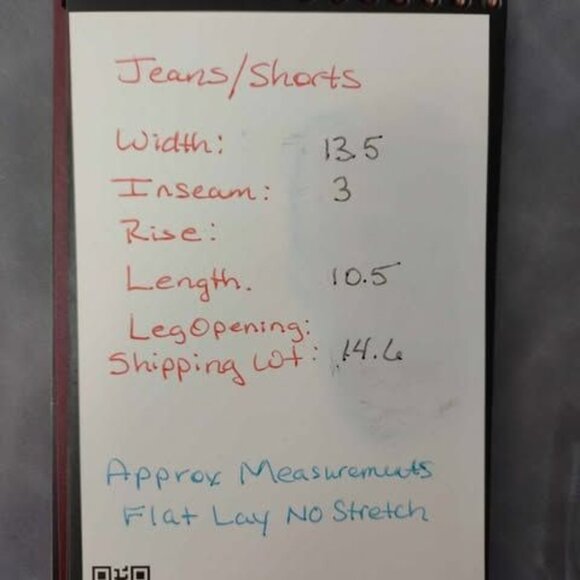 Jeans/Shorts
Width: 13.5
Inseam: 3
Rise:
Length. 10.5
Leg Opening:
Shipping Wt: 14.6
Approx Measurements
Flat Lay No Stretch